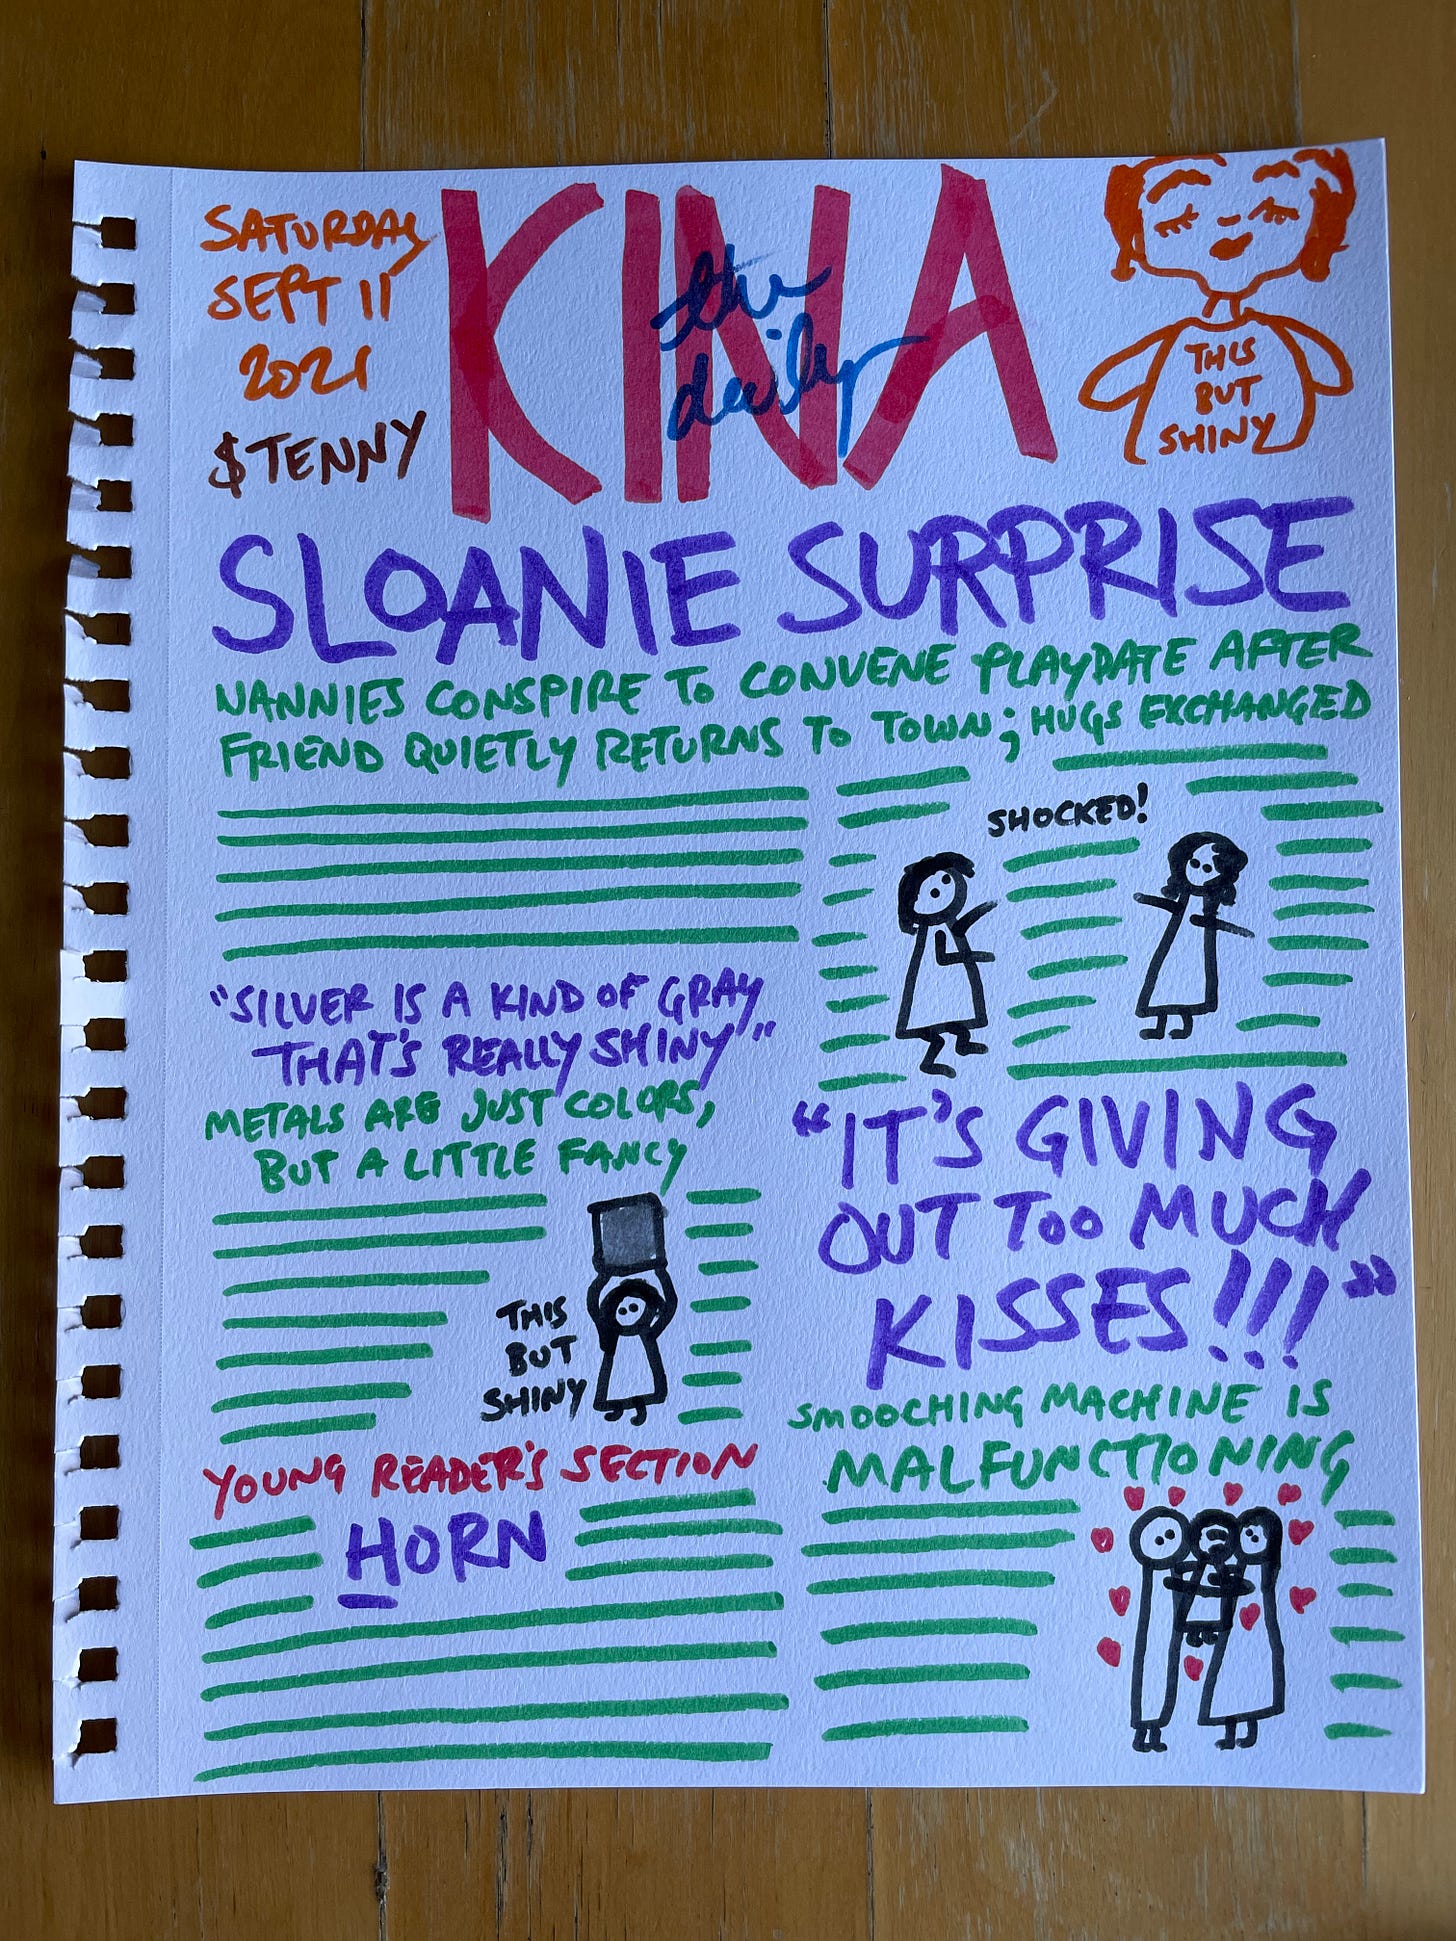 SATURDAY
SEPT 11
2021
$TENNY
KINA
the
daily
THIS
BUT
SHINY
SLOANIE SURPRISE
NANNIES CONSPIRE TO CONVENE PLAYDATE AFTER
FRIEND QUIETLY RETURNS TO TOWN; HUGS EXCHANGED
SHOCKED!
"SILVER IS A KIND OF GRAY
THAT'S REALLY SHINY"
METALS ARE JUST COLORS,
BUT A LITTLE FANCY
THIS
BUT
SHINY
"IT'S GIVING
OUT TOO MUCH
KISSES!!!"
SMOOCHING MACHINE IS
MALFUNCTIONING
YOUNG READER'S SECTION
HORN